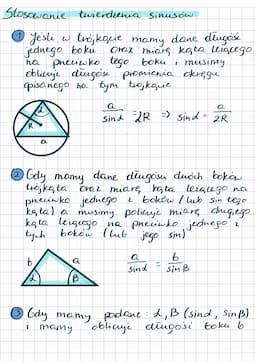 Stosowanie twierdzenia sinusów
① Jeśli w trójkącie mamy dane długość
jednego boku oraz miarę kąta leżącego
na przeciwko tego boku i musimy
obliczyć długość promienia okręgu
opisanego na tym trójkącie
α
R
a
a/sinα = 2R ⇒ sinα = a/2R
② Gdy mamy dane długości dwóch boków
trójkąta oraz miarę kąta leżącego na
przeciwko jednego z boków (lub sin tego
kąta) a musimy policzyć miarę drugiego
kąta leżącego na przeciwko jednego z
tych boków (lub jego sin)
b a
α β
a/sinα = b/sinβ
③ Gdy mamy podane: α, β (sinα, sinβ)
i mamy obliczyć długość boku b